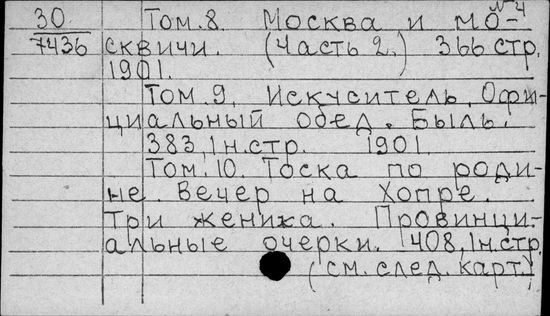 № 4
30 Том. 8. Москва и мо-
7436 сквичи. (Часть 2.) 366 стр.
1901.
Том. 9. Искуситель. Офи-
циальный обед. Быль.
383, 1 н. стр. 1901
Том. 10. Тоска по роди-
не. Вечер на Хопре.
Три жениха. Провинци-
альные очерки. 408, 1н. стр.
(см. след. карт.)